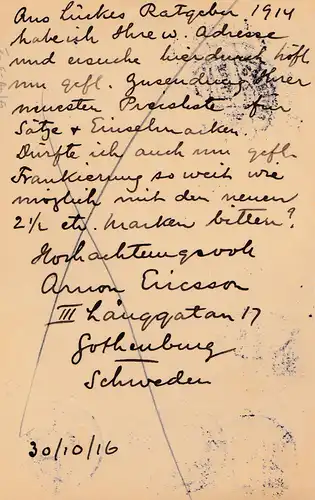 Aus Lückes Ratgeber 1914
habe ich Ihre w. Adresse
und ersuche hierdurch höfl.
um gefl. Zusendung Ihrer
neuesten Preisliste für
Sätze + Einzelmarken.
Dürfte ich auch um gefl.
Frankierung so weit wie
möglich mit den neuen
2½ ct. Marken bitten?
Hochachtungsvoll
Ericsson
III Långgatan 17
Gothenburg
Schweden
30/10/16